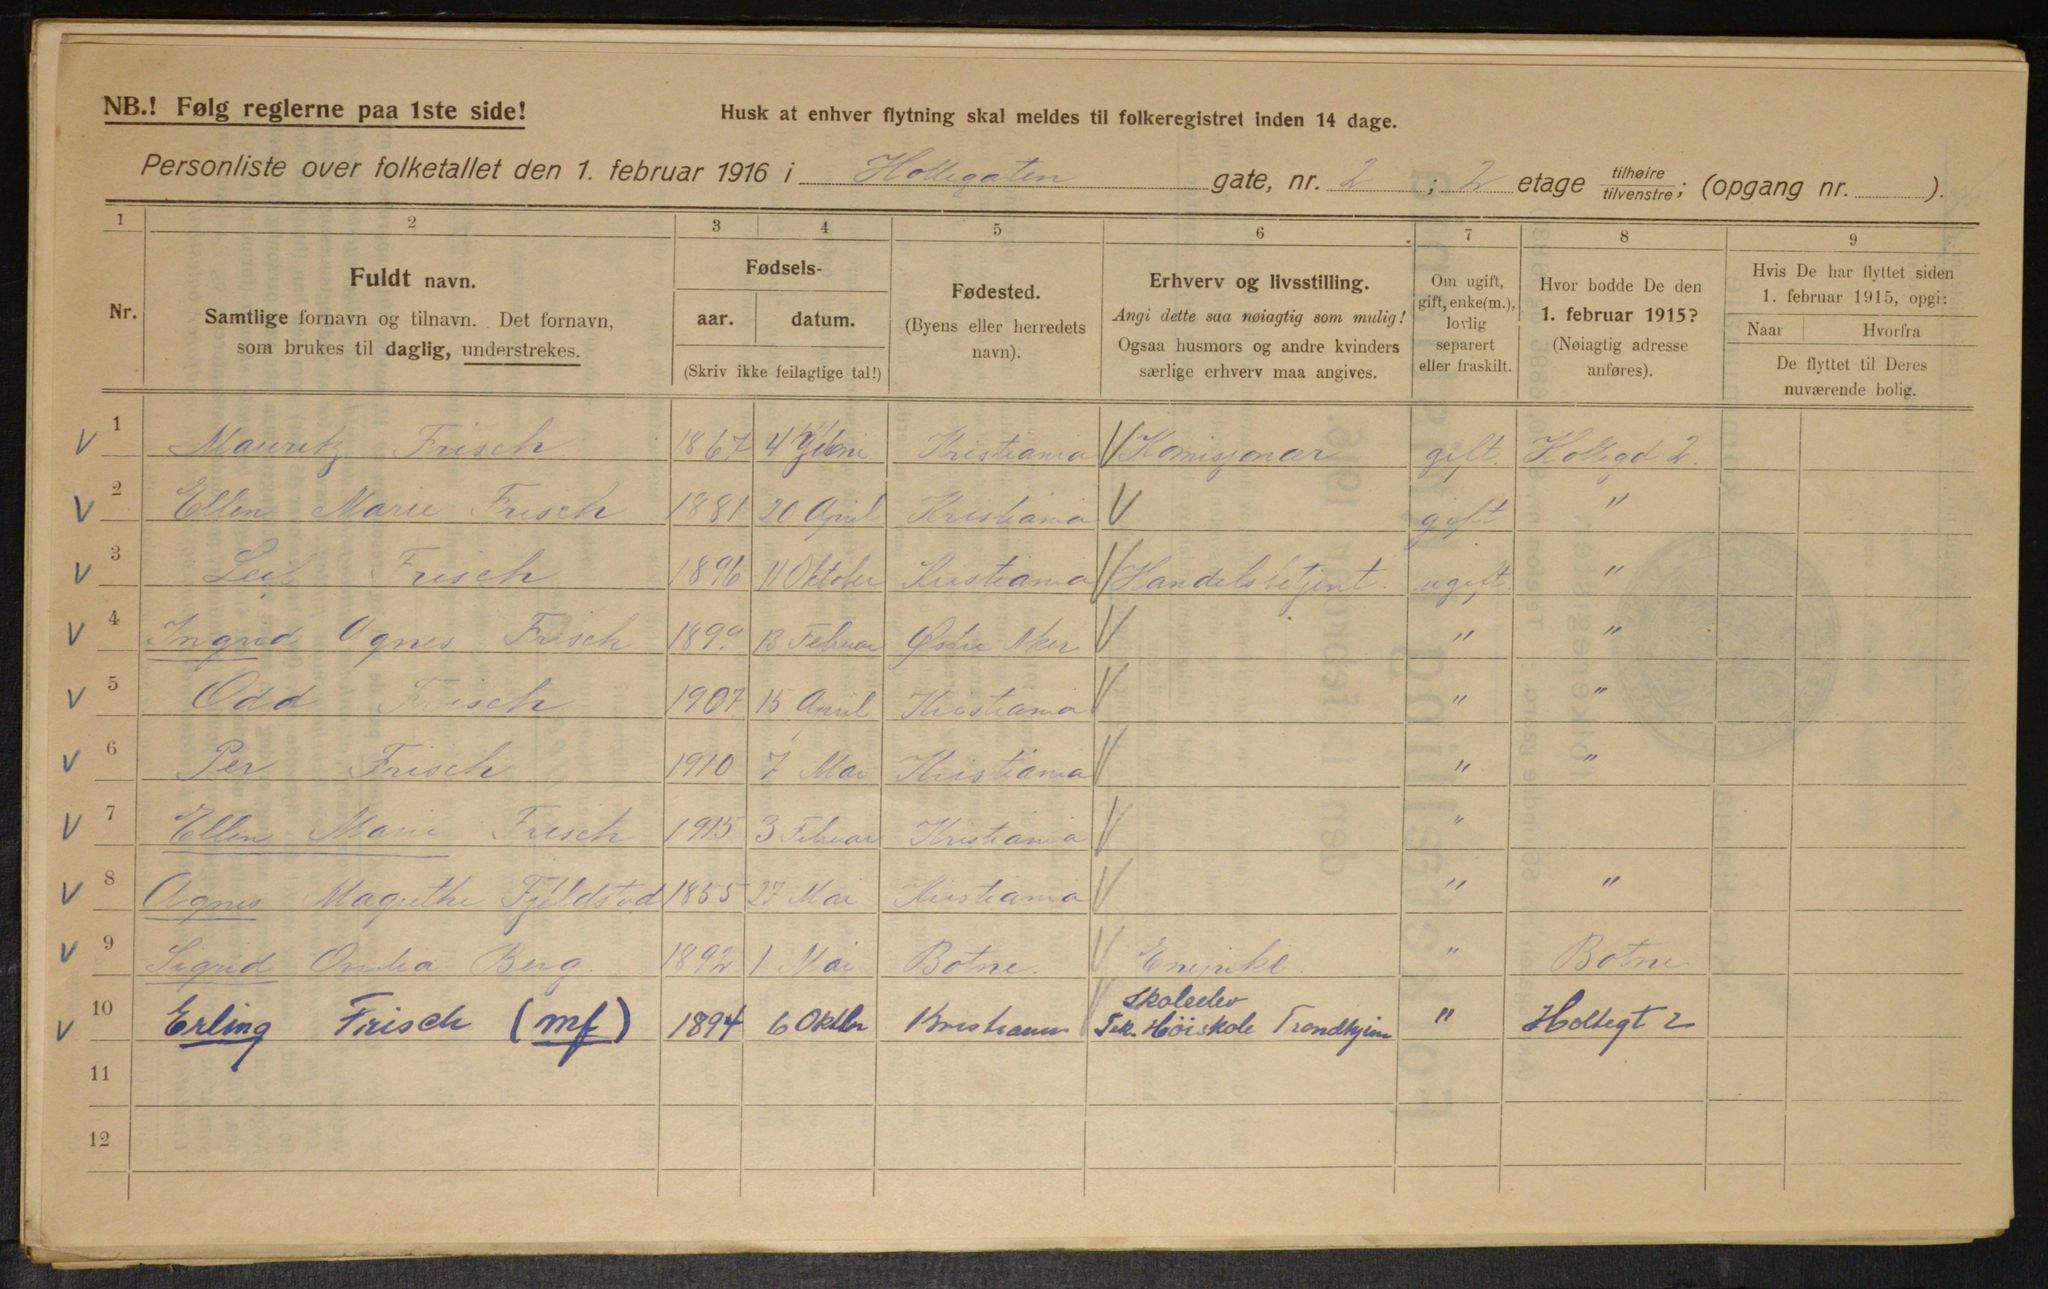 NB.! Følg reglerne paa 1ste side!
Husk at enhver flytning skal meldes til folkeregistret inden 14 dage.
Personliste over folketallet den 1. februar 1916 i Holtegaten gate, nr. 2 ; 2 etage tilhøire / tilvenstre ; (opgang nr. ).
1 2 3 4 5 6 7 8 9
Nr.
Fuldt navn.
Samtlige fornavn og tilnavn. Det fornavn,
som brukes til daglig, understrekes.
Fødsels-
aar. datum.
(Skriv ikke feilagtige tal!)
Fødested.
(Byens eller herredets
navn).
Erhverv og livsstilling.
Angi dette saa nøiagtig som mulig!
Ogsaa husmors og andre kvinders
særlige erhverv maa angives.
Om ugift,
gift, enke(m.),
lovlig
separert
eller fraskilt.
Hvor bodde De den
1. februar 1915?
(Nøiagtig adresse
anføres).
Hvis De har flyttet siden
1. februar 1915, opgi:
Naar Hvorfra
De flyttet til Deres
nuværende bolig.
V 1 Mauritz Frisch 1867 4 Kristiania V Komisjonær gift. Holtegd 2.
V 2 Ellen Marie Frisch 1881 20 April Kristiania V gift "
V 3 Leif Frisch 1896 11 Oktober Kristiania V Handelsbetjent. ugift "
V 4 Ingrid Agnes Frisch 1899 13 Februar Østre Aker V " "
V 5 Odd Frisch 1907 15 April Kristiania V " "
V 6 Per Frisch 1910 7 Mai Kristiania V " "
V 7 Ellen Marie Frisch 1915 3 Februar Kristiania V "
V 8 Agnes Magrethe Fjeldstad 1855 27 Mai Kristiania V " "
V 9 Sigrid Berg. 1892 1 Mai Botne. V " Botne
Skoleelev
V 10 Erling Frisch (mf) 1894 6 Oktbr Kristiania Tek. Høiskole Trondhjem " Holtegt 2
11
12